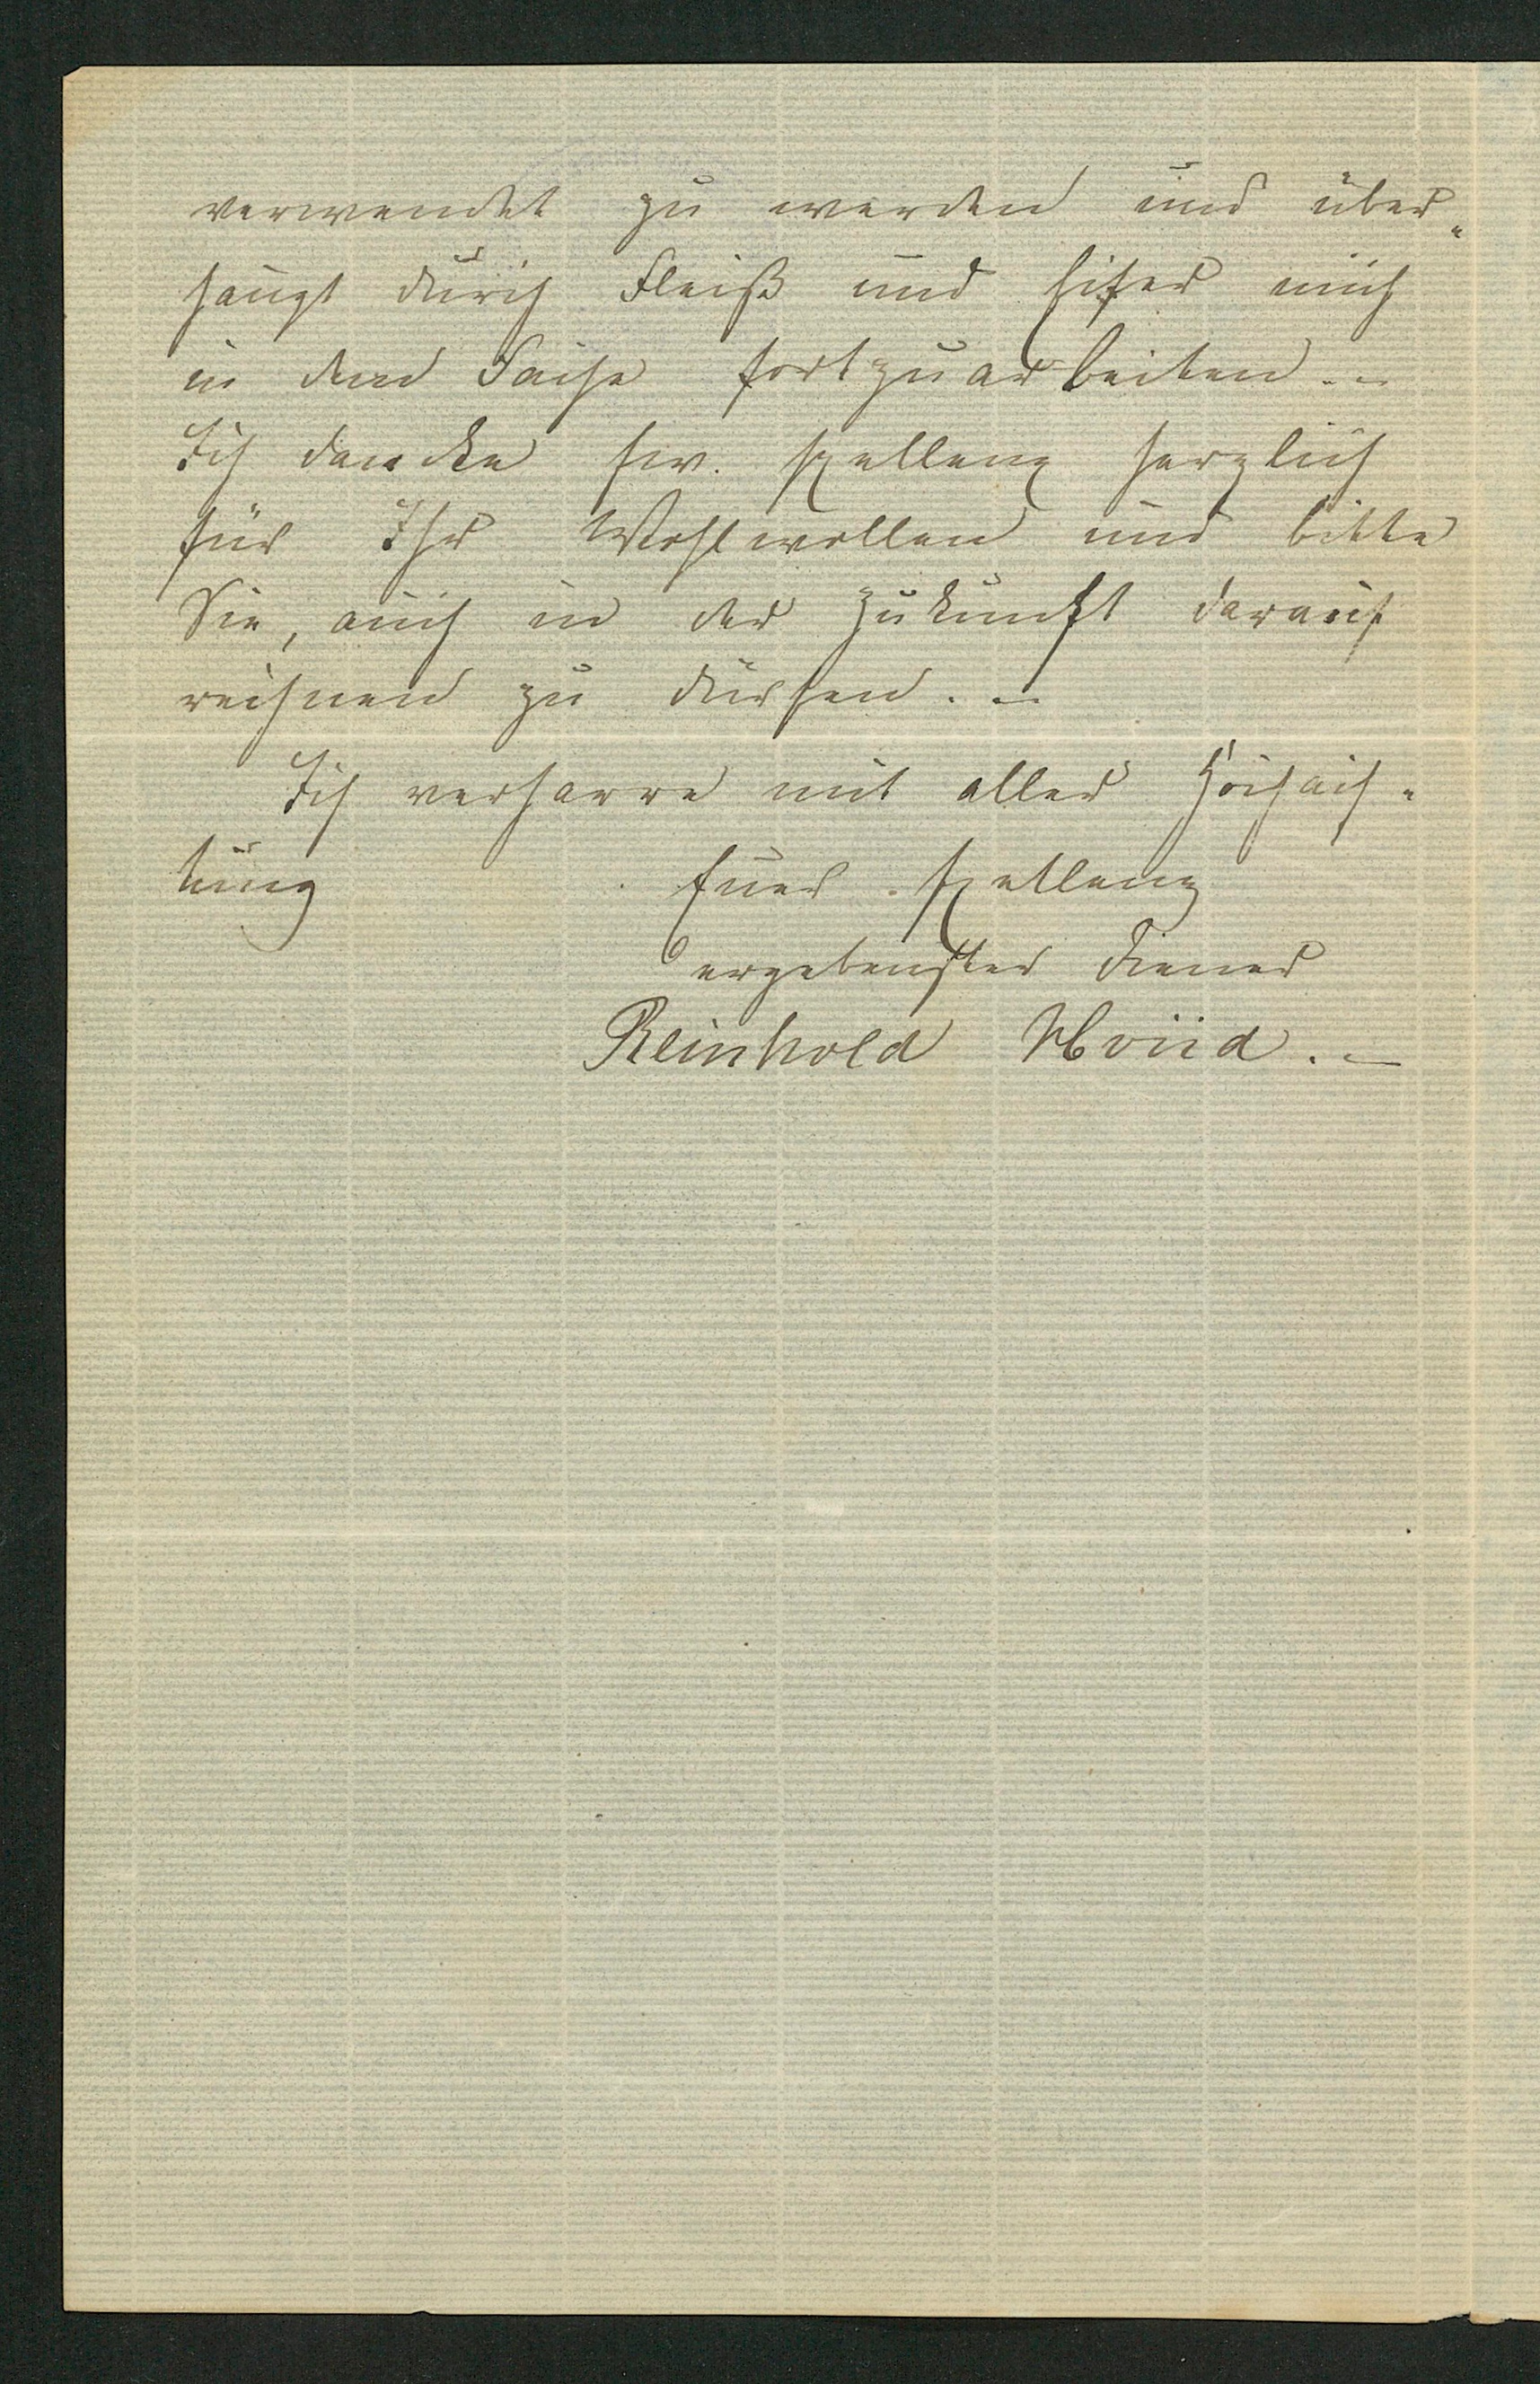 verwendet zu werden und über„
haupt durch Fleiß und Eifer mich
in der Sache fortzuarbeiten. –
Ich dancke Ew. Exellenz herzlich
für Ihr Wohlwollen und bitte
Sie, auch in der Zukunft darauf
rechnen zu dürfen. –
Ich verharre mit aller Hochach„
tung Euer Exellenz
ergebenster Diener
Reinhold Hviid. –